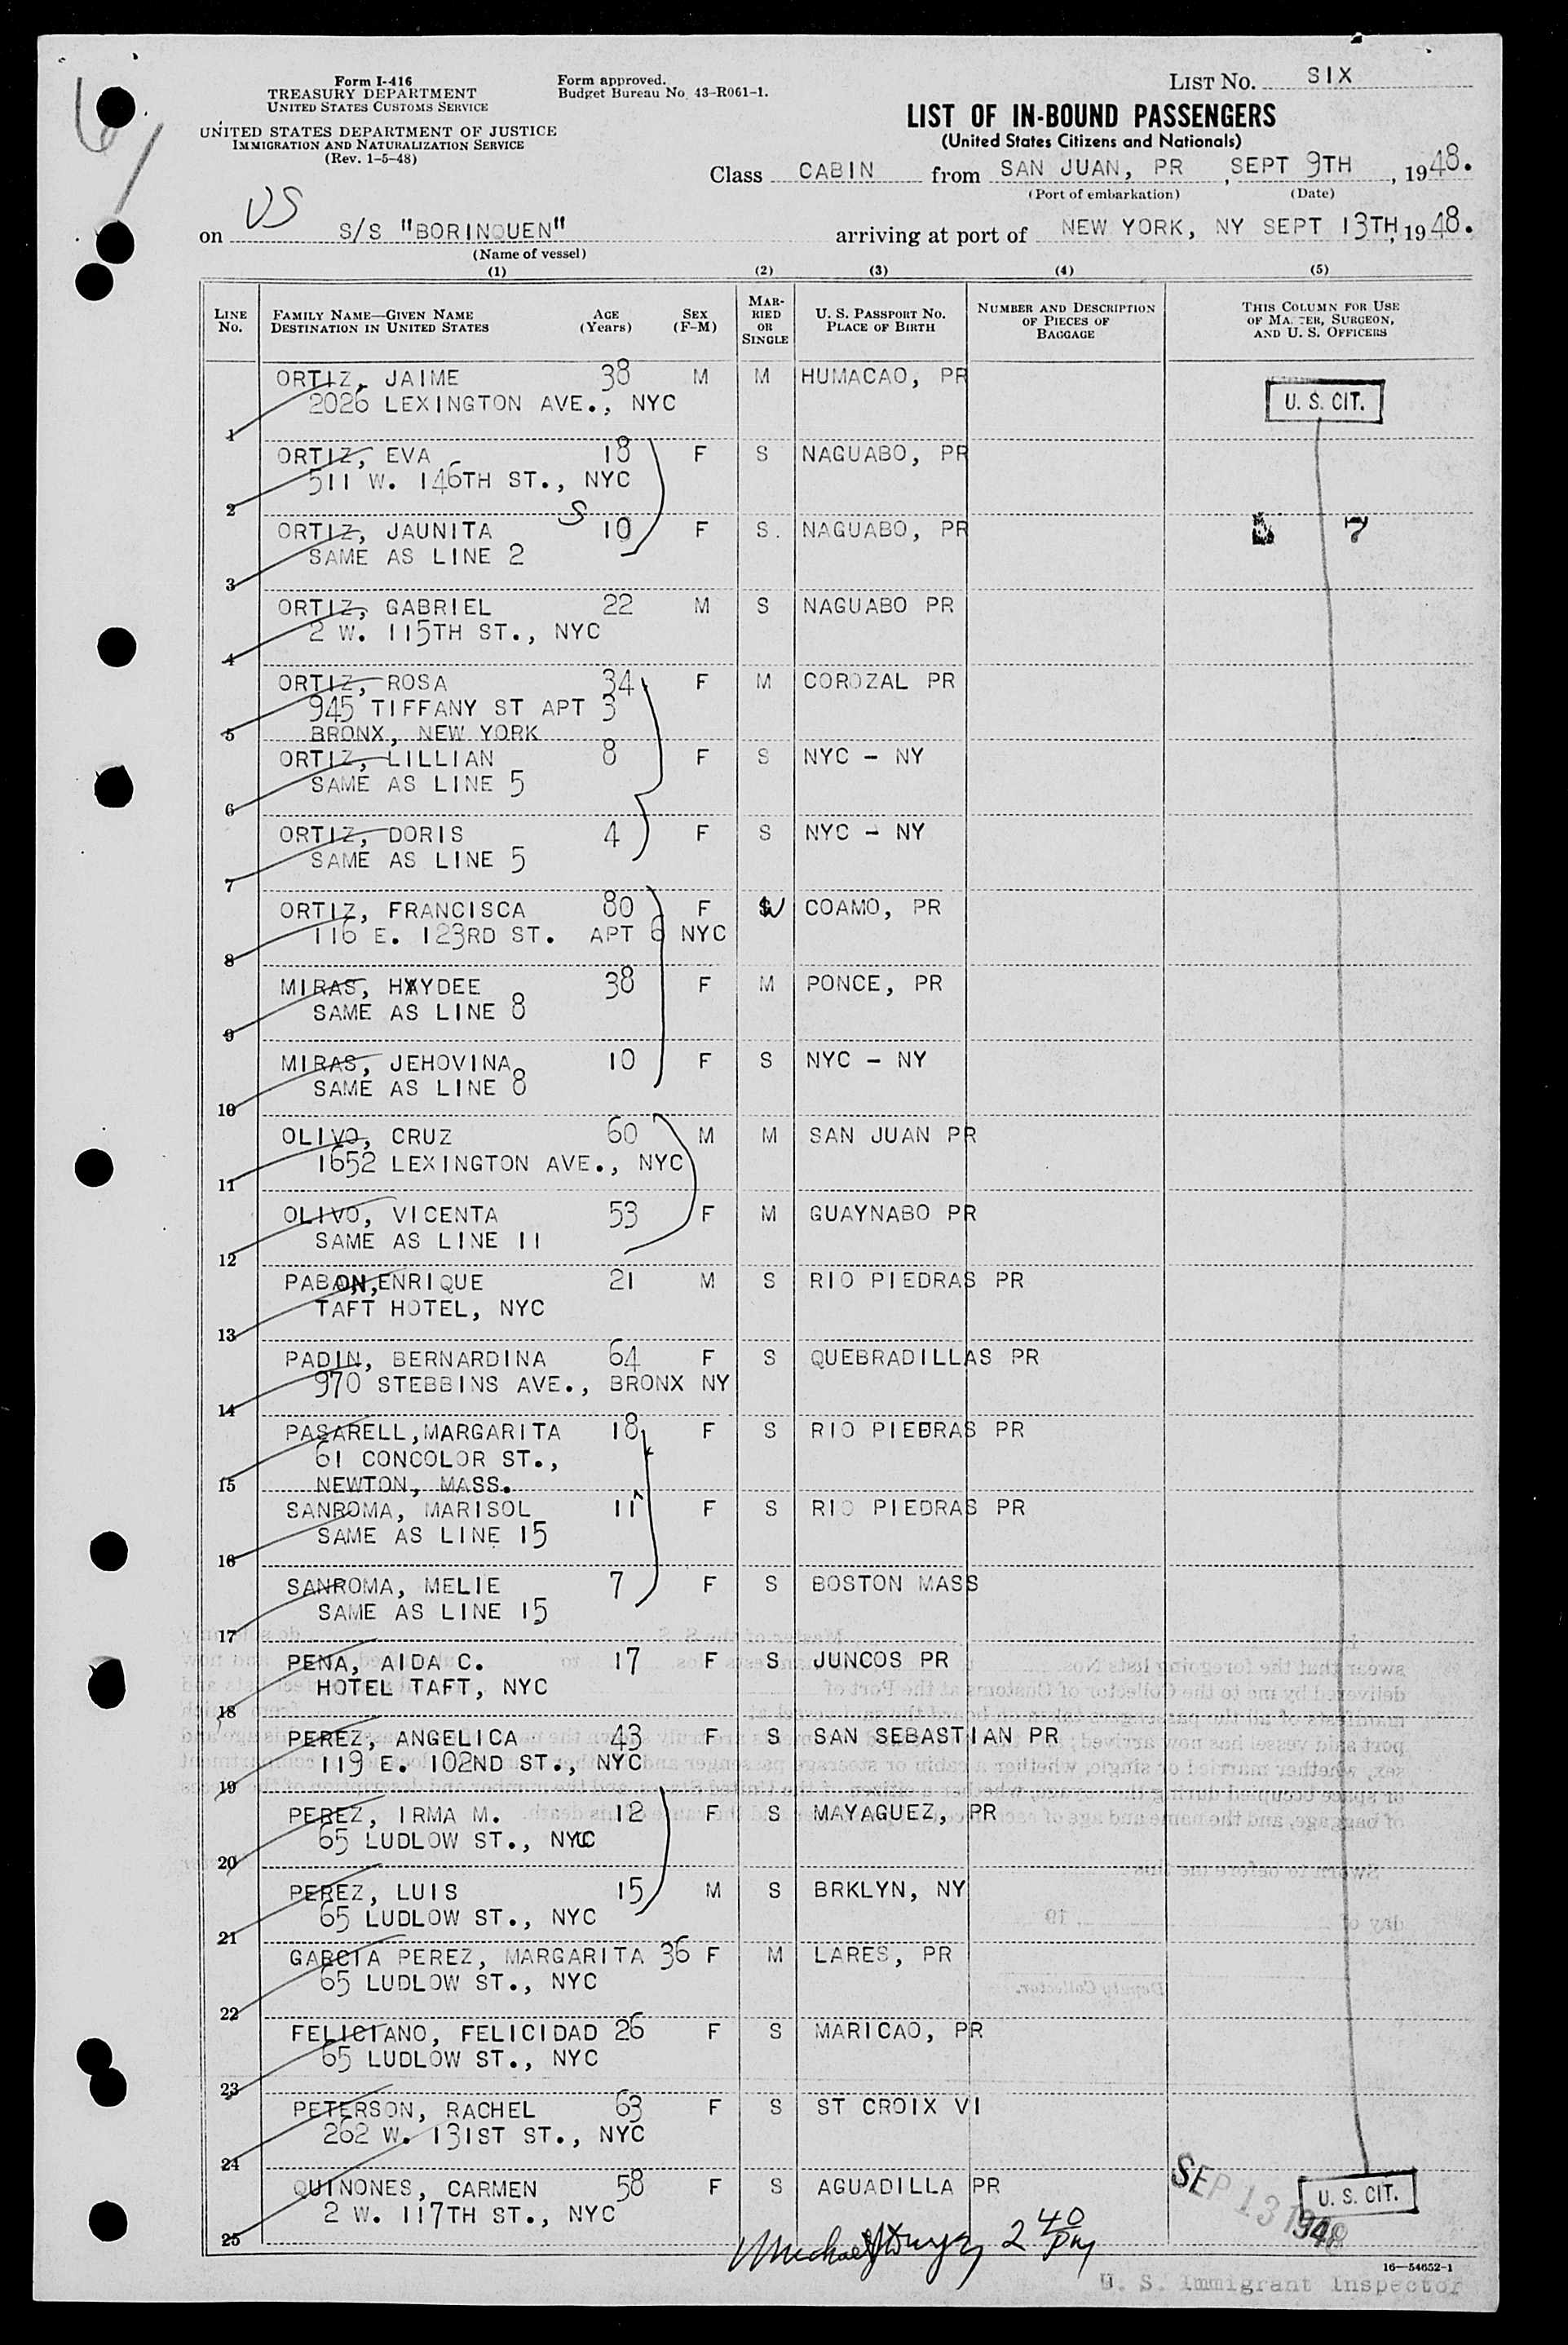 Form I-416
TREASURY DEPARTMENT
UNITED STATES CUSTOMS SERVICE
UNITED STATES DEPARTMENT OF JUSTICE
IMMIGRATION AND NATURALIZATION SERVICE
(Rev. 1-5-48)
Form approved.
Budget Bureau No. 43-R061-1.
LIST No. SIX
LIST OF IN-BOUND PASSENGERS
(United States Citizens and Nationals)
Class CABIN from SAN JUAN, PR, SEPT 9TH, 1948.
(Port of embarkation) (Date)
US
on S/S "BORINQUEN" arriving at port of NEW YORK, NY SEPT 13TH, 1948.
(Name of vessel)
(1) (2) (3) (4) (5)
LINE No.
FAMILY NAME—GIVEN NAME
DESTINATION IN UNITED STATES
AGE (Years)
SEX (F-M)
MARRIED OR SINGLE
U. S. PASSPORT No.
PLACE OF BIRTH
NUMBER AND DESCRIPTION OF PIECES OF BAGGAGE
THIS COLUMN FOR USE OF MASTER, SURGEON, AND U. S. OFFICERS
ORTIZ, JAIME 38 M M HUMACAO, PR
2026 LEXINGTON AVE., NYC U. S. CIT.
1
ORTIZ, EVA 18 F S NAGUABO, PR
511 W. 146TH ST., NYC
2 S
ORTIZ, JAUNITA 10 F S. NAGUABO, PR 7
SAME AS LINE 2
3
ORTIZ, GABRIEL 22 M S NAGUABO PR
2 W. 115TH ST., NYC
4
ORTIZ, ROSA 34 F M COROZAL PR
945 TIFFANY ST APT 3
5 BRONX, NEW YORK
ORTIZ, LILLIAN 8 F S NYC - NY
SAME AS LINE 5
6
ORTIZ, DORIS 4 F S NYC - NY
SAME AS LINE 5
7
ORTIZ, FRANCISCA 80 F W COAMO, PR
116 E. 123RD ST. APT 6 NYC
8
MIRAS, HAYDEE 38 F M PONCE, PR
SAME AS LINE 8
9
MIRAS, JEHOVINA 10 F S NYC - NY
SAME AS LINE 8
10
OLIVO, CRUZ 60 M M SAN JUAN PR
1652 LEXINGTON AVE., NYC
11
OLIVO, VICENTA 53 F M GUAYNABO PR
SAME AS LINE 11
12
PABON, ENRIQUE 21 M S RIO PIEDRAS PR
TAFT HOTEL, NYC
13
PADIN, BERNARDINA 64 F S QUEBRADILLAS PR
970 STEBBINS AVE., BRONX NY
14
PASARELL, MARGARITA 18 F S RIO PIEDRAS PR
61 CONCOLOR ST.,
15 NEWTON, MASS.
SANROMA, MARISOL 11 F S RIO PIEDRAS PR
SAME AS LINE 15
16
SANROMA, MELIE 7 F S BOSTON MASS
SAME AS LINE 15
17
PENA, AIDA C. 17 F S JUNCOS PR
HOTEL TAFT, NYC
18
PEREZ, ANGELICA 43 F S SAN SEBASTIAN PR
119 E. 102ND ST., NYC
19
PEREZ, IRMA M. 12 F S MAYAGUEZ, PR
65 LUDLOW ST., NYC
20
PEREZ, LUIS 15 M S BRKLYN, NY
65 LUDLOW ST., NYC
21
GARCIA PEREZ, MARGARITA 36 F M LARES, PR
65 LUDLOW ST., NYC
22
FELICIANO, FELICIDAD 26 F S MARICAO, PR
65 LUDLOW ST., NYC
23
PETERSON, RACHEL 63 F S ST CROIX VI
262 W. 131ST ST., NYC
24
QUINONES, CARMEN 58 F S AGUADILLA PR
2 W. 117TH ST., NYC
25
SEP 13 1948 U. S. CIT.
2 40 PM
16—54652-1
U. S. Immigrant Inspector